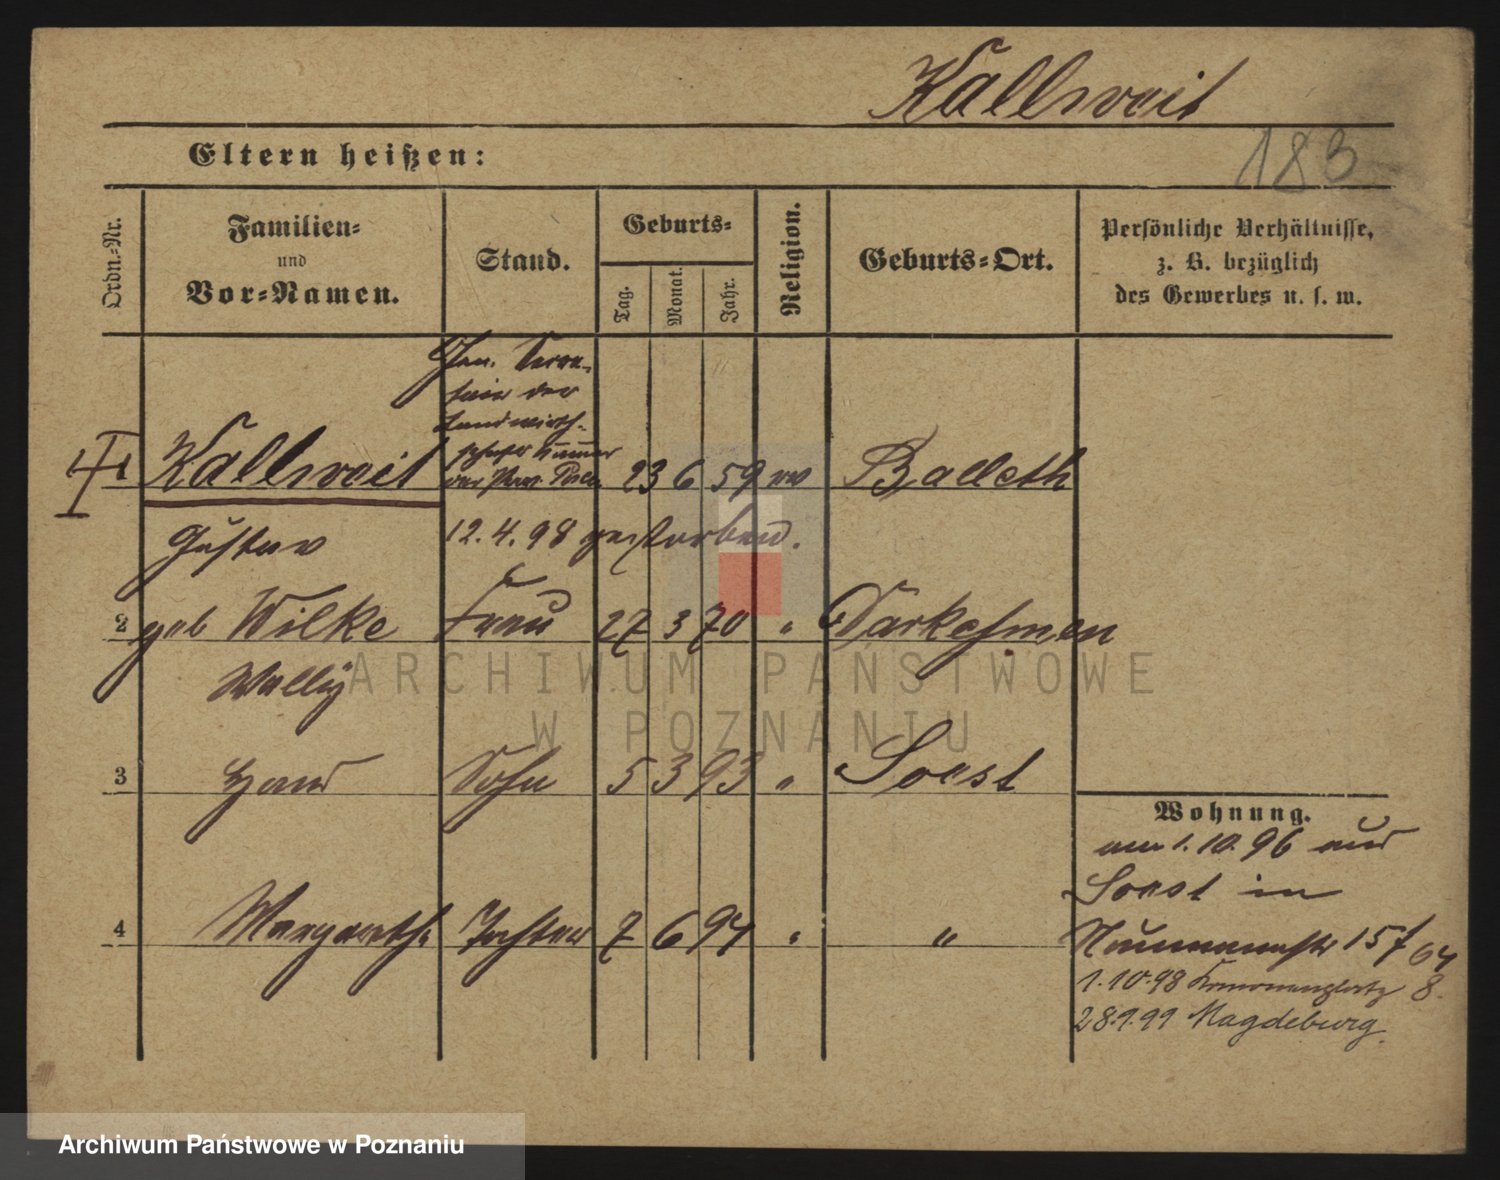 Kallweit
183
Eltern heißen:
Ordn.-Nr.
Familien-
und
Vor-Namen.
Stand.
Geburts-
Tag.
Monat.
Jahr.
Religion.
Geburts-Ort.
Persönliche Verhältnisse,
z. B. bezüglich
des Gewerbes u. s. w.
Gen. Secre-
tair der
Landwirth-
schafts Kammer
der Prov. Posen
1 Kallweit 23 6 59 ev Balleth
Gustav 12.4.98 gestorben.
2 geb Wilke Frau 27 3 70 " Darkehmen
Wally
3 Hans Sohn 5 3 93 " Soest
4 Margarethe Tochter 7 6 94 " "
Wohnung.
am 1.10.96 aus
Soest in
Naumannstr 15
1.10.98 8.
28.9.99 Magdeburg.
ARCHIWUM PAŃSTWOWE
W POZNANIU
Archiwum Państwowe w Poznaniu